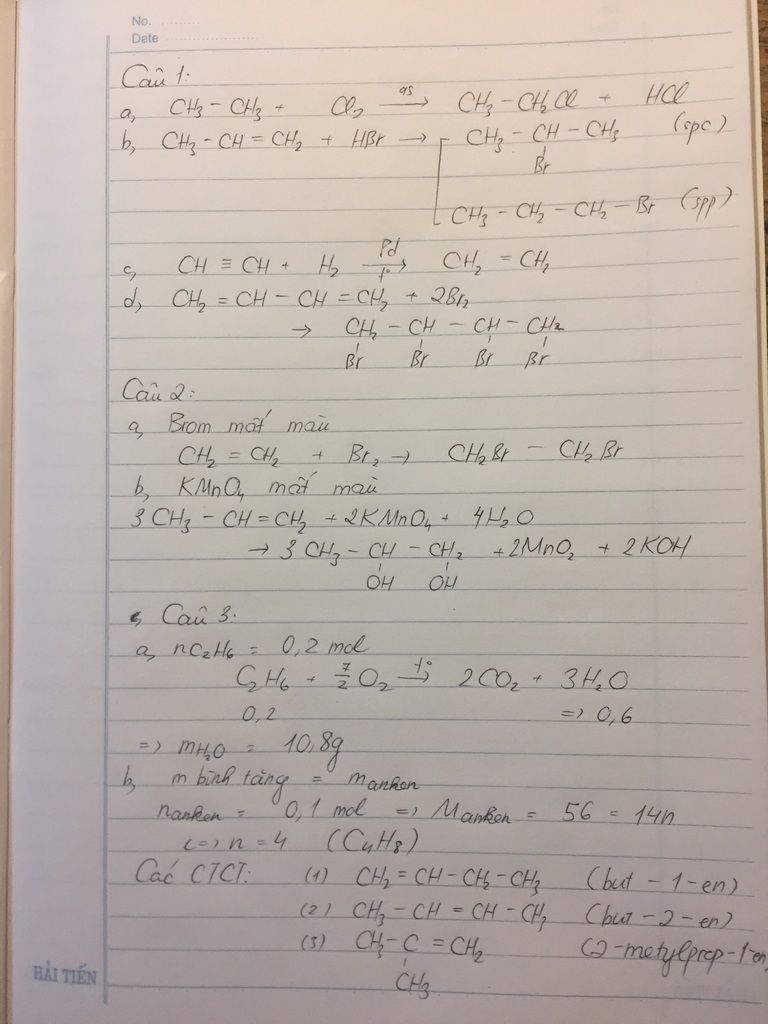 No.
Date
Câu 1:
a, CH₃ - CH₃ + Cl₂ —as→ CH₃ - CH₂Cl + HCl
b, CH₃ - CH = CH₂ + HBr → CH₃ - CH - CH₃ (spc)
Br
CH₃ - CH₂ - CH₂ - Br (spp)
c, CH ≡ CH + H₂ —Pd/t°→ CH₂ = CH₂
d, CH₂ = CH - CH = CH₂ + 2Br₂
→ CH₂ - CH - CH - CH₂
Br Br Br Br
Câu 2:
a, Brom mất màu
CH₂ = CH₂ + Br₂ → CH₂Br - CH₂Br
b, KMnO₄ mất màu
3CH₃ - CH = CH₂ + 2KMnO₄ + 4H₂O
→ 3CH₃ - CH - CH₂ + 2MnO₂ + 2KOH
OH OH
Câu 3:
a, nC₂H₆ = 0,2 mol
C₂H₆ + 7/2 O₂ —t°→ 2CO₂ + 3H₂O
0,2 => 0,6
=> mH₂O = 10,8g
b, m bình tăng = manken
nanken = 0,1 mol => Manken = 56 = 14n
<=> n = 4 (C₄H₈)
Các CTCT: (1) CH₂ = CH - CH₂ - CH₃ (but - 1 - en)
(2) CH₃ - CH = CH - CH₃ (but - 2 - en)
(3) CH₃ - C = CH₂ (2-metylprop-1-en)
CH₃
HẢI TIẾN